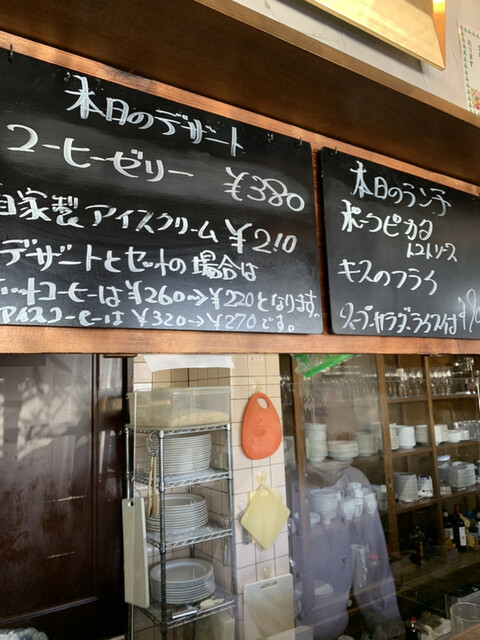 本日のデザート
コーヒーゼリー ¥380
自家製アイスクリーム ¥210
デザートとセットの場合は
ホットコーヒーは¥260→¥220となります。
アイスコーヒーは¥320→¥270です。
本日のランチ
ポークピカタ
トマトソース
キスのフライ
スープ・サラダ・ライス付